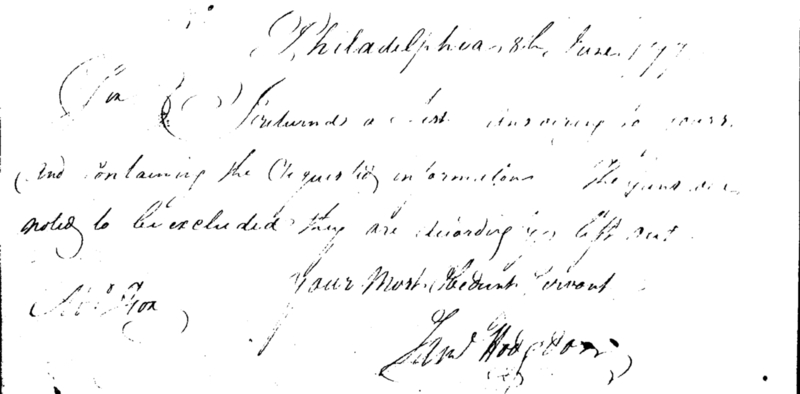 Philadelphia 8th June 179
Sir
I returned a List answering to yours
and containing the requested information The guns are
noted to be excluded they are accordingly left out
Your Most Obedient Servant
Mr Fox
Saml Hodgdon